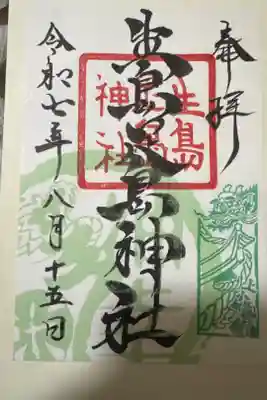 奉拝
生島足島神社
令和七年八月十五日
生島
足島
神社